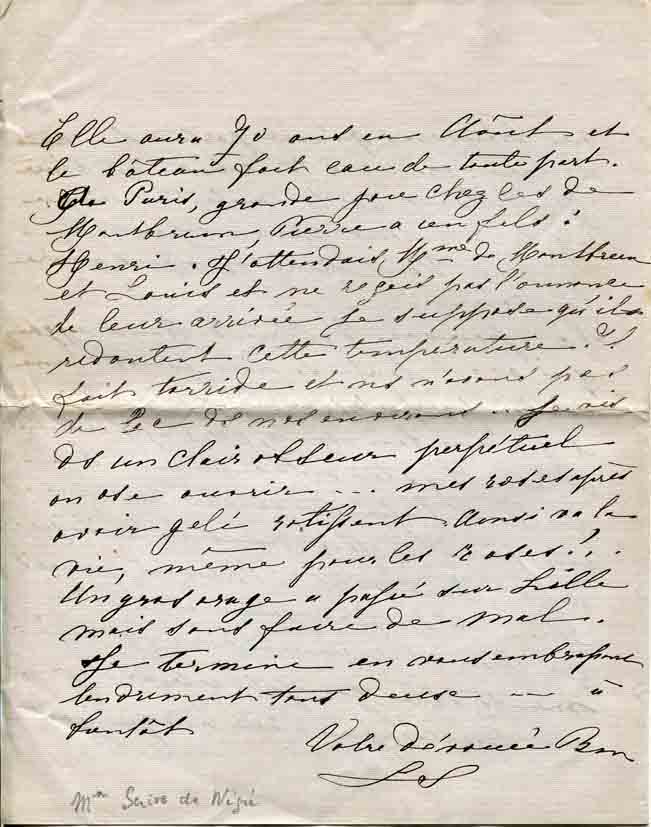 Elle aura 70 ans en Août et
le bâteau fait eau de toute part.
De Paris, grande joie chez les de
Montbrun, Pierre a un fils :
Henri. J'attendais Mme de Montbrun
et Louis et ne reçois pas l'annonce
de leur arrivée je suppose qu'ils
redoutent cette température. Il
fait torride et ns n'avons pas
de ds nos environs.. Je vis
ds un clair obscur perpétuel
on ose ouvrir ... mes roses après
avoir gelé rotissent ainsi va la
vie, même pour les roses!..
Un gros orage a passé sur Lille
mais sans faire de mal.
Je termine en vous embrassant
tendrement tous deux -- à
bientôt
Votre dévouée Bon
LS
Mme Scrive de Négri